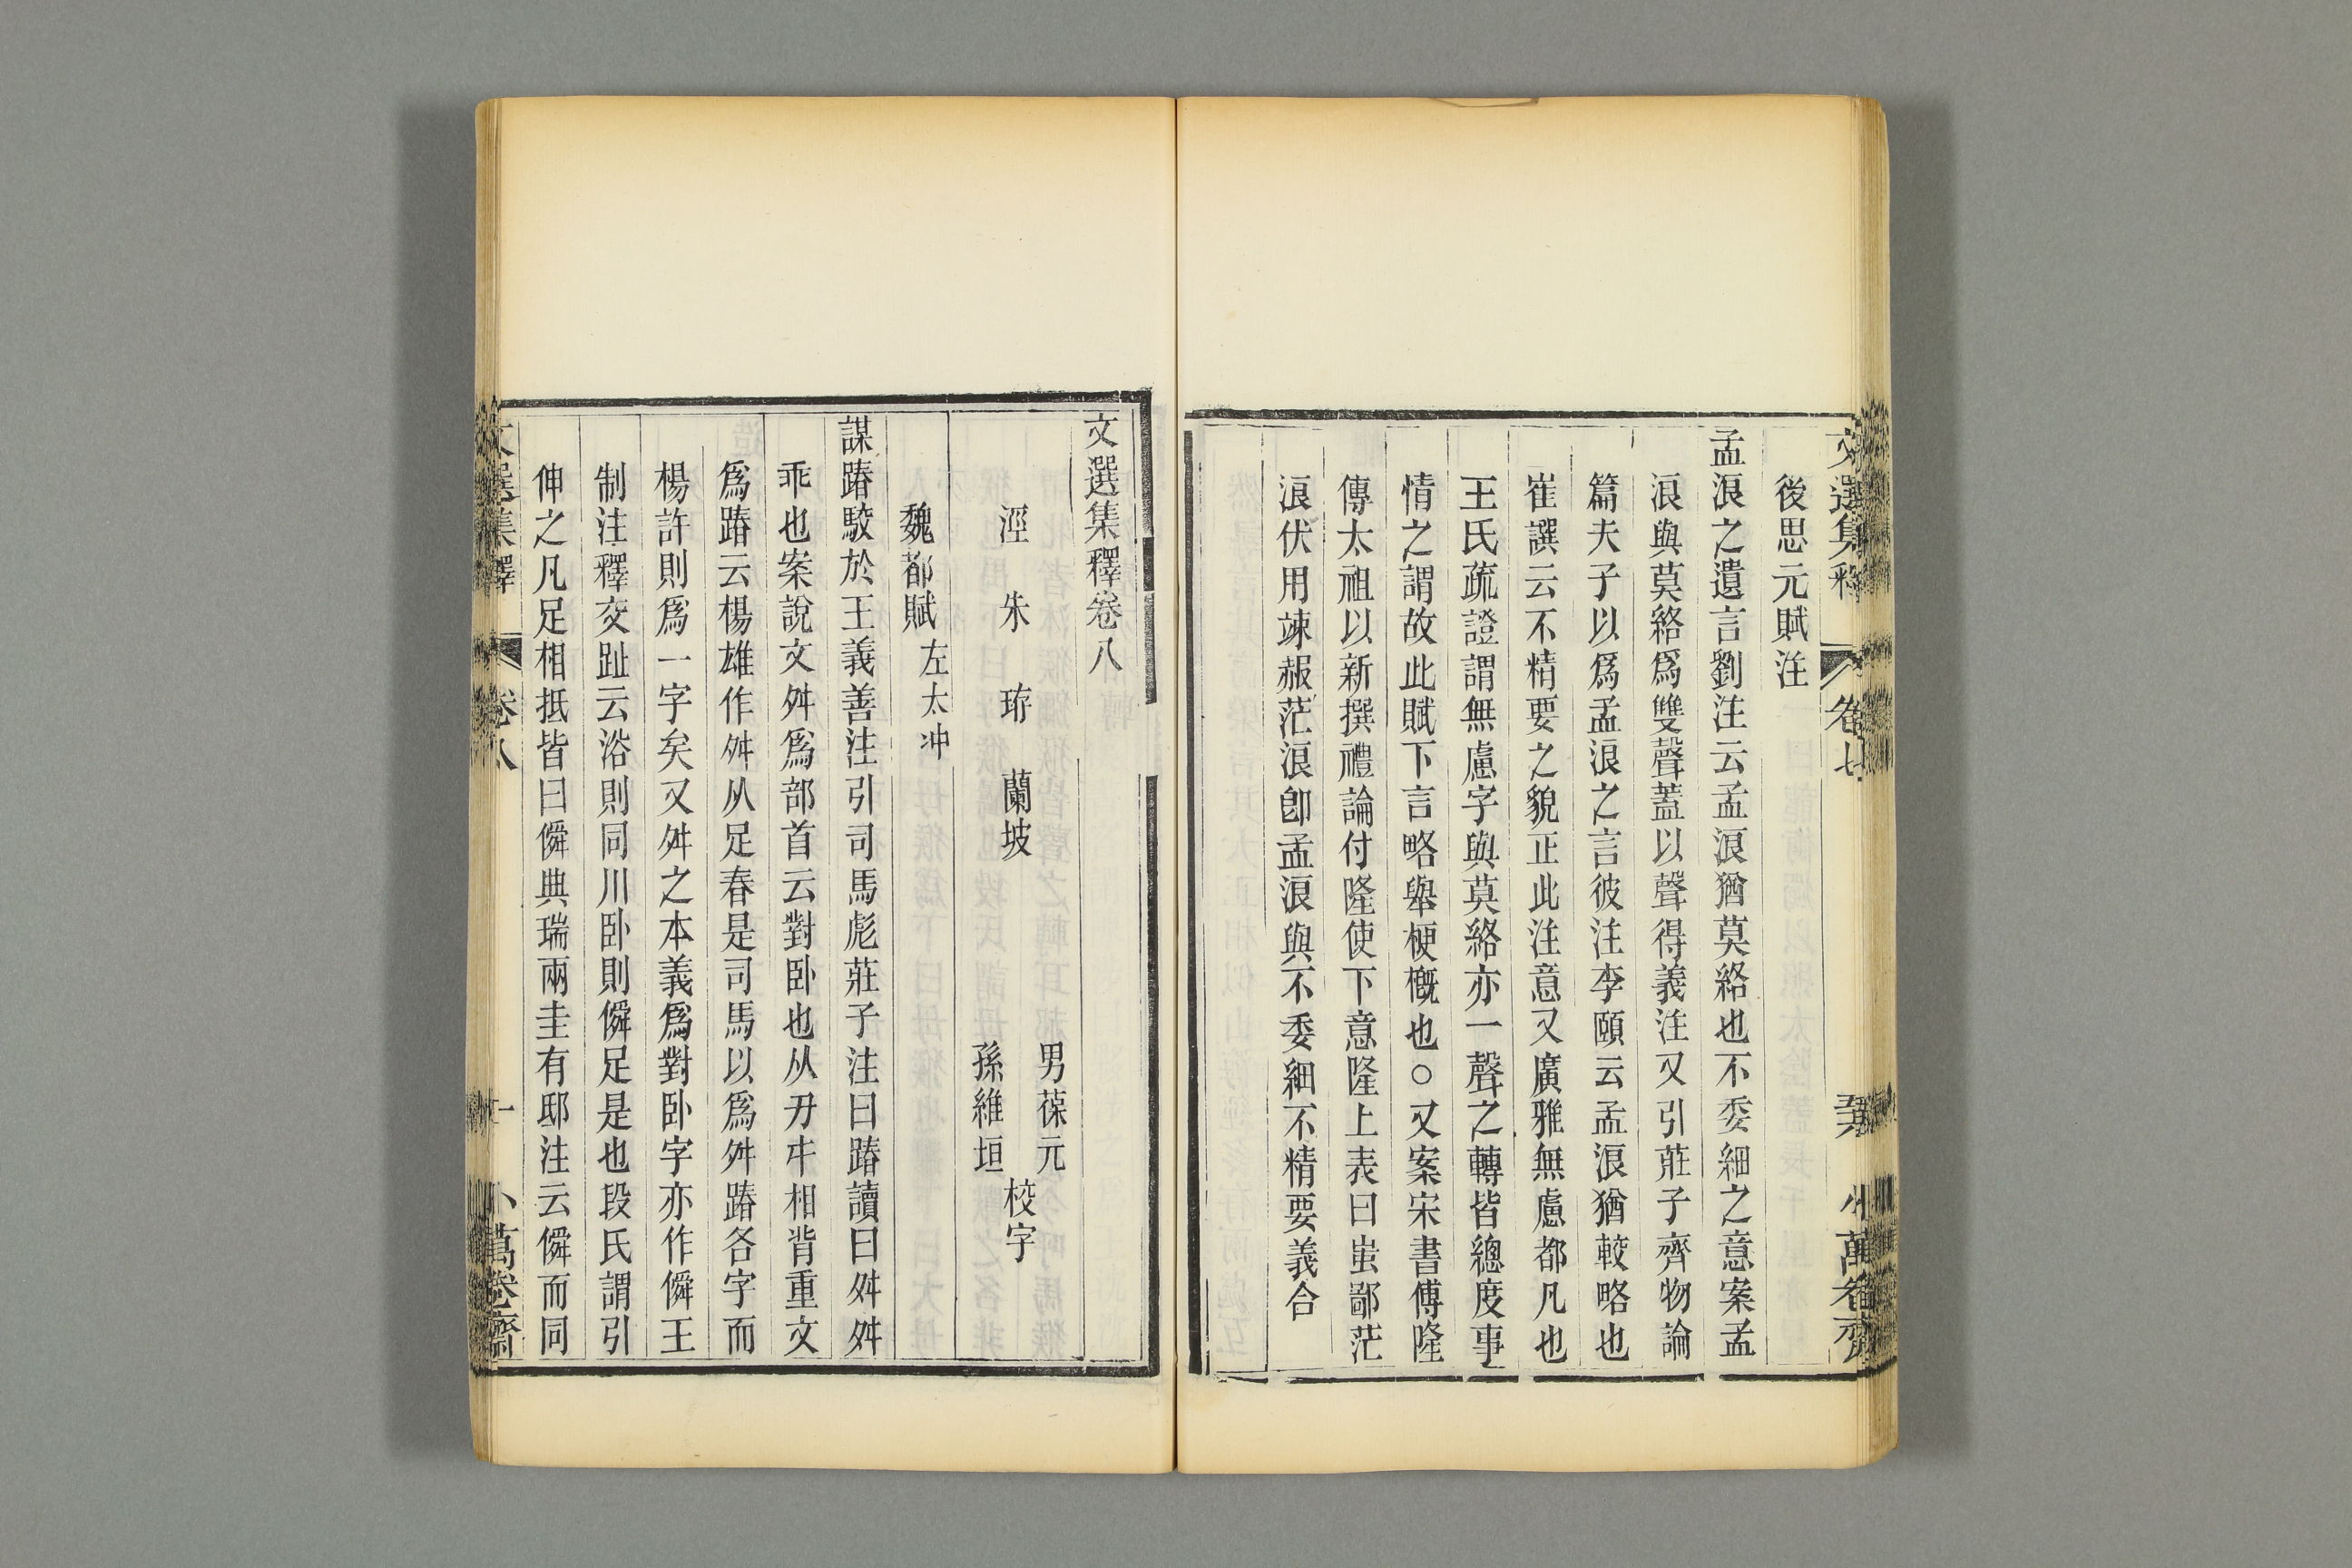 文選集釋 卷七 小萬卷齋
後思元賦注
孟浪之遺言劉注云孟浪猶莫絡也不委細之意案孟
浪與莫絡爲雙聲蓋以聲得義注又引莊子齊物論
篇夫子以爲孟浪之言彼注李頤云孟浪猶較略也
崔譔云不精要之貌正此注意又廣雅無慮都凡也
王氏疏證謂無慮字與莫絡亦一聲之轉皆總度事
情之謂故此賦下言略舉梗概也○又案宋書傅隆
傳太祖以新撰禮論付隆使下意隆上表曰蚩鄙茫
浪伏用竦赧茫浪卽孟浪與不委細不精要義合
文選集釋卷八
涇 朱 珔 蘭坡
男葆元
孫維垣
校字
魏都賦左太冲
謀踳駮於王義善注引司馬彪莊子注曰踳讀曰舛舛
乖也案說文舛爲部首云對臥也从夕㐄相背重文
爲踳云楊雄作舛从足春是司馬以爲舛踳各字而
楊許則爲一字矣又舛之本義爲對臥字亦作僢王
制注釋交趾云浴則同川臥則僢足是也段氏謂引
伸之凡足相抵皆曰僢典瑞兩圭有邸注云僢而同
文選集釋 卷八 一 小萬卷齋